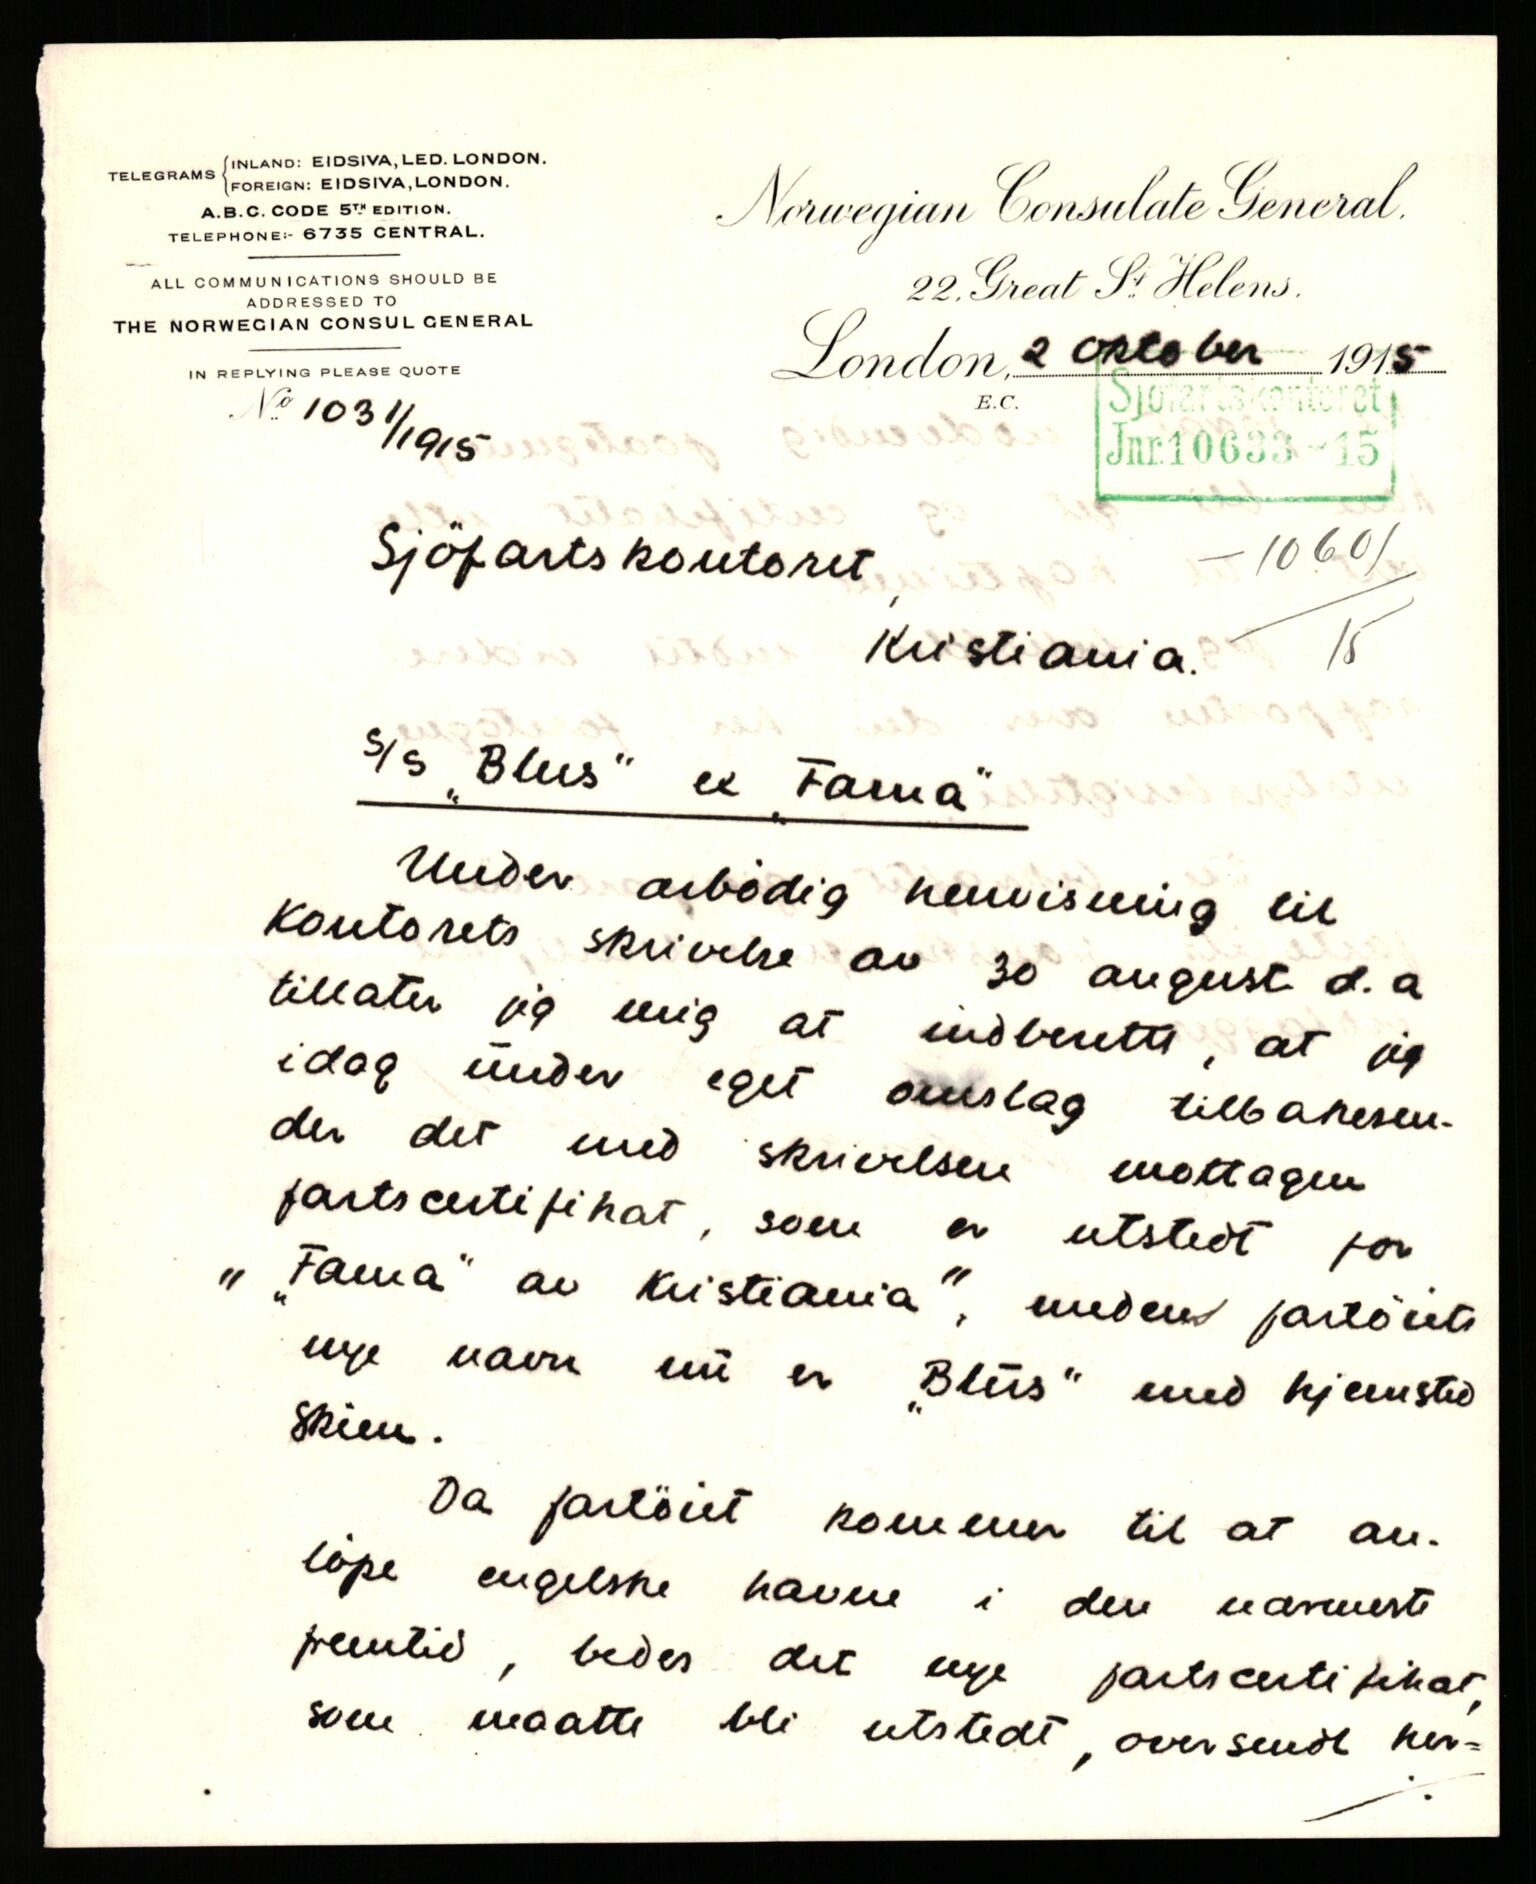 TELEGRAMS { INLAND: EIDSIVA, LED. LONDON.
FOREIGN: EIDSIVA, LONDON.
A.B.C. CODE 5TH EDITION.
TELEPHONE:- 6735 CENTRAL.
ALL COMMUNICATIONS SHOULD BE
ADDRESSED TO
THE NORWEGIAN CONSUL GENERAL
IN REPLYING PLEASE QUOTE
No 1031/1915
Norwegian Consulate General.
22, Great St Helens.
London, 2 Oktober 1915
E.C.
Sjøfartskontoret
Jnr. 10633-15
Sjöfartskontoret,
- 10601/15
Kristiania.
S/S „Blus“ ex „Fama“
Under ærbödig henvisning til
Kontorets skrivelse av 30 august d.a
tillater jeg mig at indberette, at jeg
idag under eget omslag tilbakesen-
der det med skrivelsen mottagne
fartscertifikat, som er utstedt for
" „Fama“ av Kristiania", medens fartöiets
nye navn nu er „Blus“ med hjemsted
Skien.
Da fartöiet kommer til at an-
löpe engelske havne i den nærmeste
fremtid, bedes det nye fartscertifikat,
som maatte bli utstedt, oversendt her-